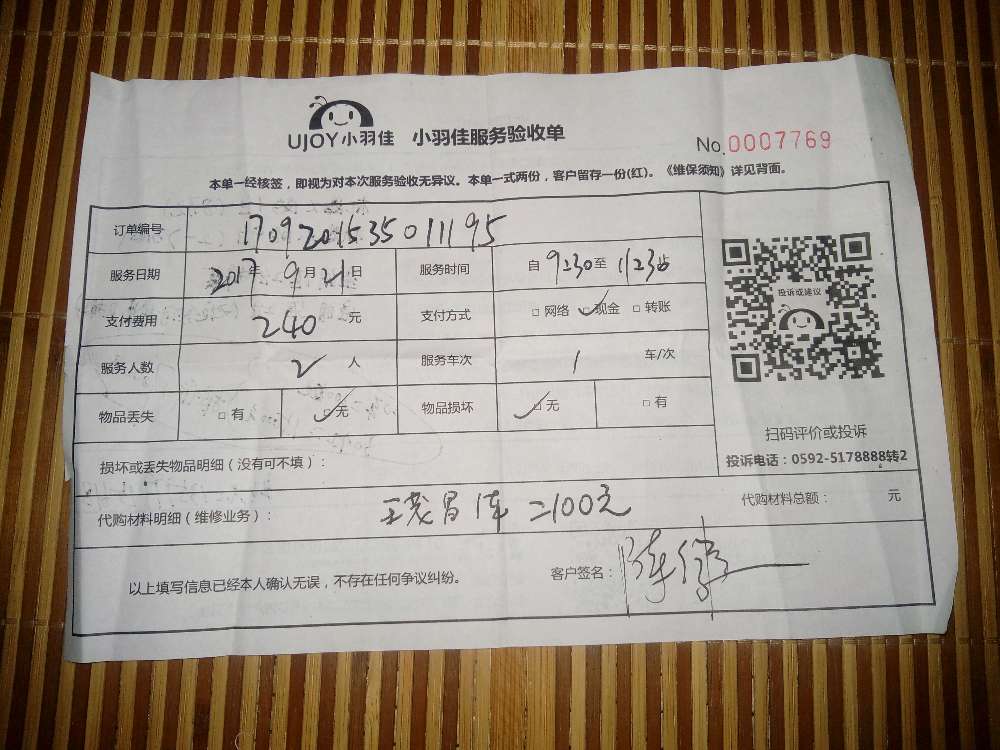 UJOY小羽佳 小羽佳服务验收单
No.0007769
本单一经核签,即视为对本次服务验收无异议。本单一式两份,客户留存一份(红)。《维保须知》详见背面。
订单编号 170920153501195
服务日期 2017年9月21日 服务时间 自9230至11230
支付费用 240元 支付方式 □网络 □现金 □转账
服务人数 2人 服务车次 1 车/次
物品丢失 □有 □无 物品损坏 □无 □有
投诉或建议
扫码评价或投诉
投诉电话:0592-5178888转2
损坏或丢失物品明细(没有可不填):
代购材料明细(维修业务): 二100元 代购材料总额: 元
以上填写信息已经本人确认无误,不存在任何争议纠纷。 客户签名: